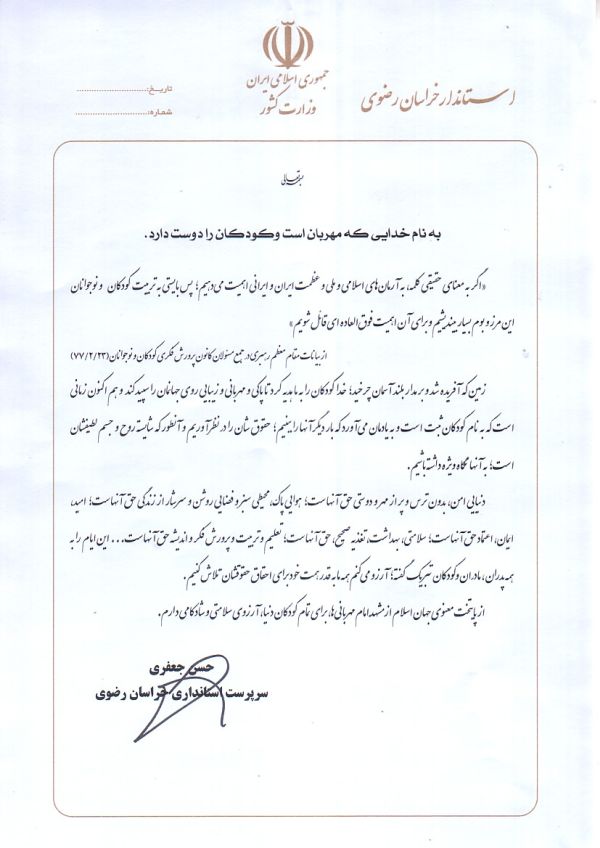 جمهوری اسلامی ایران
وزارت کشور
استاندار خراسان رضوی
تاریخ:..............................
شماره:..............................
بسمه تعالی
به نام خدایی که مهربان است و کودکان را دوست دارد.
«اگر به معنای حقیقی کلمه، به آرمان های اسلامی و ملی و عظمت ایران و ایرانی اهمیت می دهیم؛ پس بایستی به تربیت کودکان و نوجوانان
این مرز و بوم بسیار بیندیشیم و برای آن اهمیت فوق العاده ای قائل شویم»
از بیانات مقام معظم رهبری در جمع مسئولان کانون پرورش فکری کودکان و نوجوانان (۷۷/۲/۲۳)
زمین که آفریده شد و بر مدار بلند آسمان چرخید؛ خدا کودکان را به ما هدیه کرد تا پاکی و مهربانی و زیبایی روی جهانمان را سپید کند و هم اکنون زمانی
است که به نام کودکان ثبت است و به یادمان می آورد که بار دیگر آنها را ببینیم؛ حقوق شان را در نظر آوریم و آنطور که شایسته روح و جسم لطیفشان
است؛ به آنها نگاه ویژه داشته باشیم.
دنیایی امن، بدون ترس و پر از مهر و دوستی حق آنهاست؛ هوایی پاک، محیطی سبز و فضایی روشن و سرشار از زندگی حق آنهاست؛ امید،
ایمان، اعتماد حق آنهاست؛ سلامتی، بهداشت، تغذیه صحیح، حق آنهاست؛ تعلیم و تربیت و پرورش فکر و اندیشه حق آنهاست... این ایام را به
همه پدران، مادران و کودکان تبریک گفته؛ آرزو می کنم همه ما به قدر همت خود برای احقاق حقوقشان تلاش کنیم.
از پایتخت معنوی جهان اسلام از مشهد امام مهربانی ها، برای تمام کودکان دنیا، آرزوی سلامتی و شادکامی دارم.
حسن جعفری
سرپرست استانداری خراسان رضوی